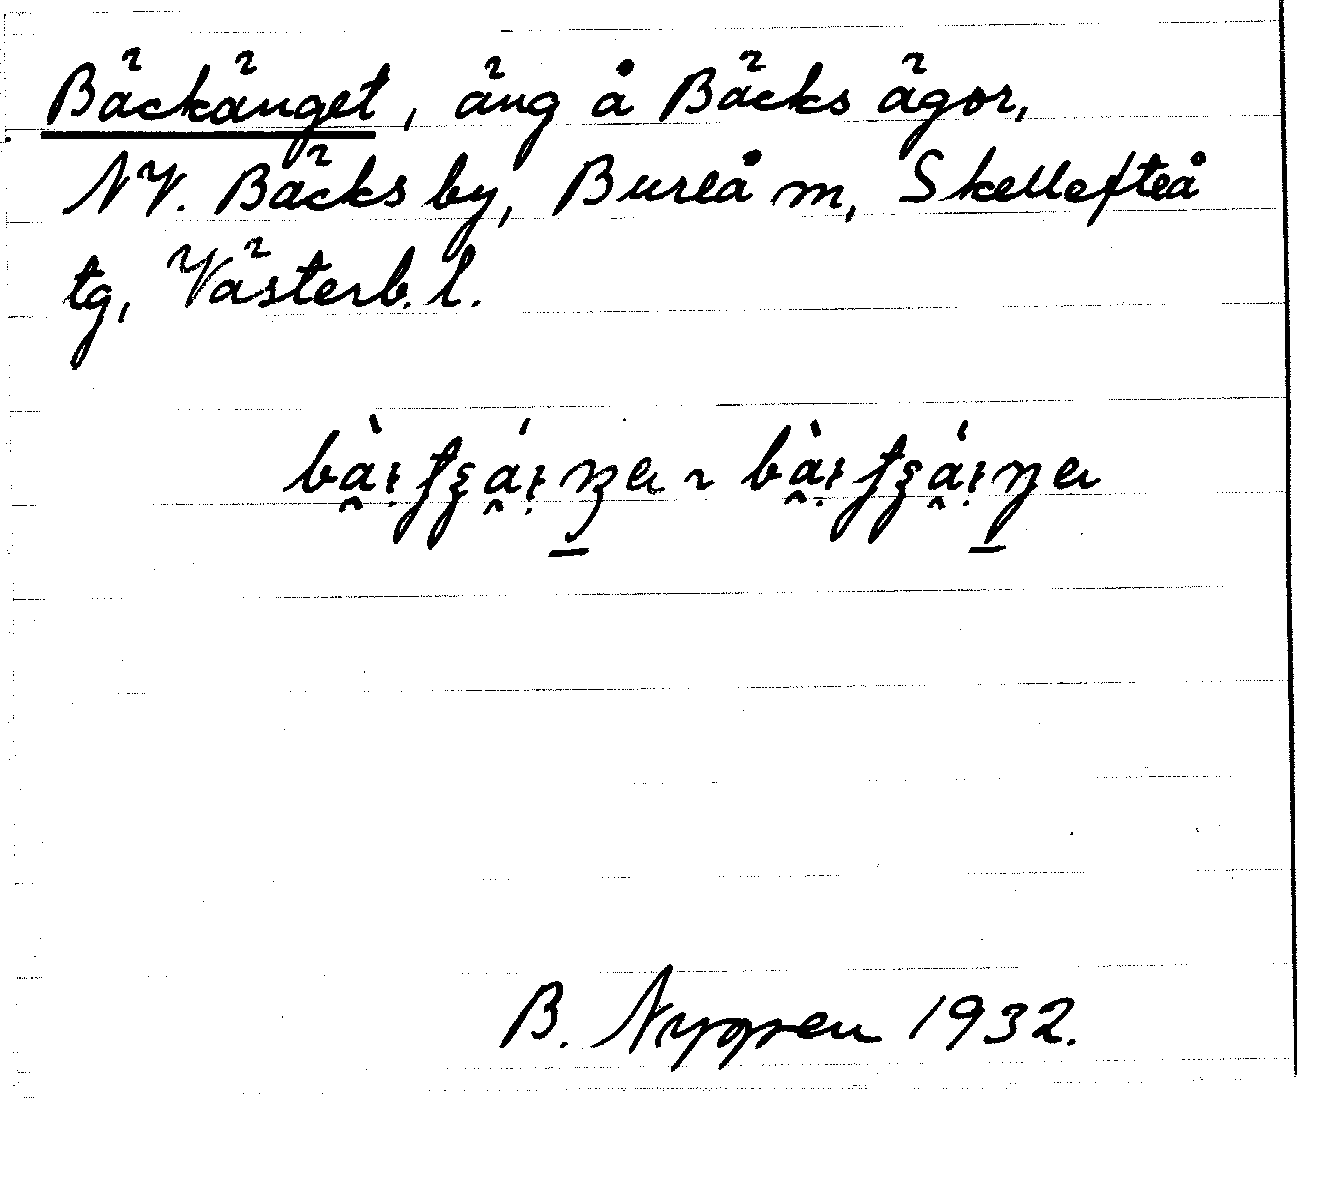 Bäckänget, äng å Bäcks ägor,
NV. Bäcks by, Bureå m, Skellefteå
tg, Västerb. l.
B. Nygren 1932.